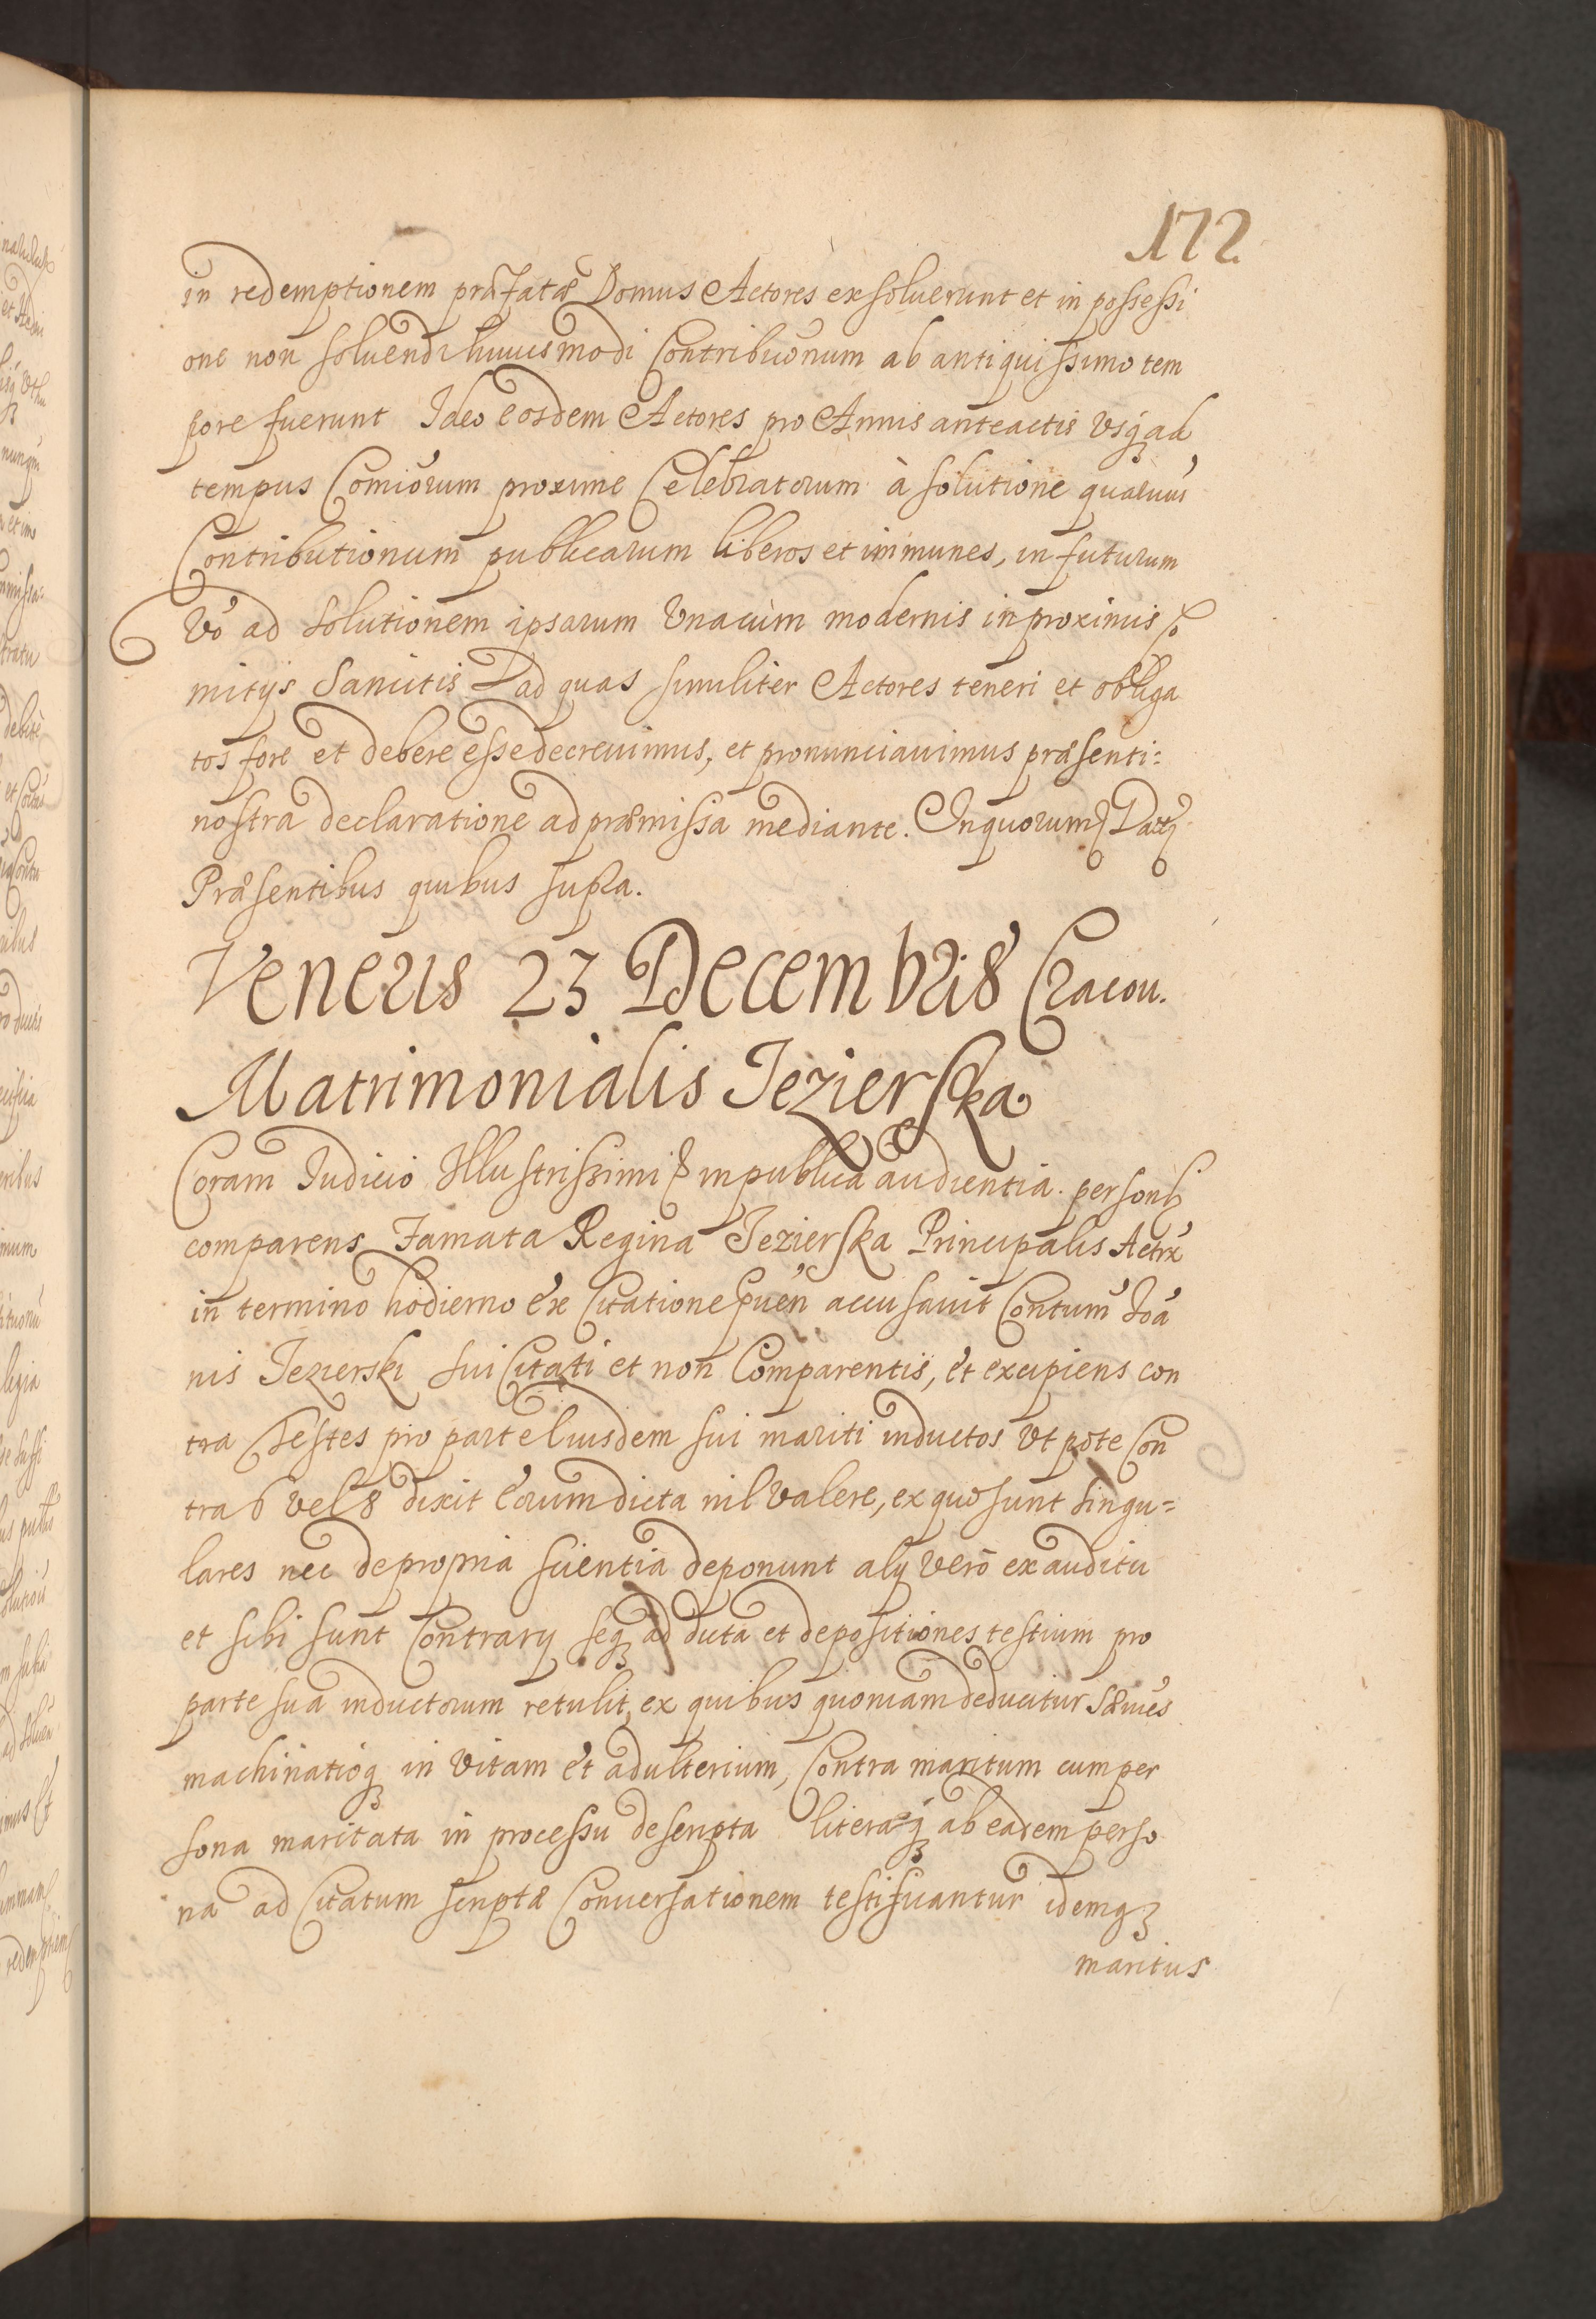 172
in redemptionem præfatæ Domus Actores exsoluerunt et in possessi
one non soluendi huiusmodi Contribuonum ab antiquissimo tem
pore fuerunt Ideo eosdem Actores pro Annis anteactis Usq ad
tempus Comiorum proxime Celebratorum à solutione quaruis
Contributionum publicarum liberos et immunes, in futurum
Vo ad solutionem ipsarum Unacum modernis in proximis Co
mitijs Sancitis ad quas similiter Actores teneri et obliga
tos fore et debere esse decreuimus, et pronunciauimus præsenti=
nostra declaratione ad præmissa mediante. In quorum Datt
Præsentibus quibus supra.
Veneris 23 Decembris Cracou.
Matrimonialis Jezierska
Coram Judicio Illustrissimi in publica audientia. personlr
comparens Famata Regina Jezierska Principalis Actrx
in termino hodierno ex Citatione accusauit Contum Joa
nis Jezierski sui Citati et non Comparentis, et excipiens con
tra Testes pro parte Eiusdem sui mariti inductos Ut pote Con
tra 6 vel 8 dixit Eorum dicta nil valere, ex quo sunt singu=
lares nec de propria scientia deponunt alij vero ex auditu
et sibi sunt Contrarij seq ad dicta et depositiones testium pro
parte sua inductorum retulit, ex quibus quoniam deducitur Sæuies
machinatioq in Vitam et adulterium, Contra maritum cum per
sona maritata in processu descripta literæq ab eadem perso
na ad Citatum scriptæ Conuersationem testificantur idemq
maritus